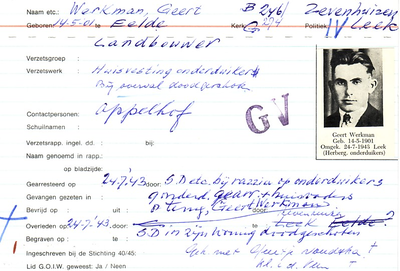 Naam etc.: Werkman, Geert B 246/ Zevenhuizen
Geboren: 14.5.01 te Eelde Kerk: G 274 Politiek: IV Leek
Landbouwer
Verzetsgroep :
Verzetswerk : Huisvesting onderduikers
Bij overval doodgeschoten
Contactpersonen: Appelhof
Schuilnamen :
GV
Geert Werkman
Geb. 14-5-1901
Omgek. 24-7-1943 Leek
(Herberg. onderduikers)
Verzetsrapp. ingel. dd. : bij:
Naam genoemd in rapp.:
op bladzijde:
Gearresteerd op 24.7.43 door: S.D etc. bij razzia op onderduikers
Gevangen gezeten in : 9 onderd. gearr. + huisraad
Bevrijd op : uit : Geert Werkman
Zevenhuizen
Overleden op: 24.7.43 door: te Leek Eelde ?
S.D in zijn woning doodgeschoten
Begraven op : te :
Ingeschreven bij de Stichting 40/45:
Lid G.O.I.W. geweest: Ja / Neen